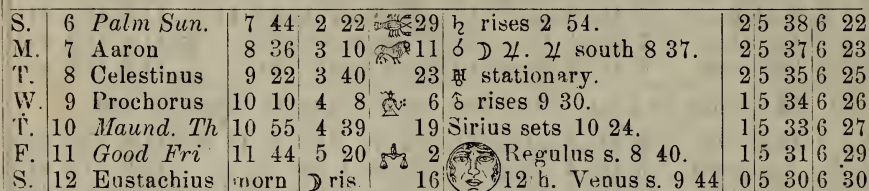 S. 6 Palm Sun. 7 44 2 22 29 ♄ rises 2 54. 2 5 38 6 22
M. 7 Aaron 8 36 3 10 11 ☌ ☽ ♃. ♃ south 8 37. 2 5 37 6 23
T. 8 Celestinus 9 22 3 40 23 ♅ stationary. 2 5 35 6 25
W. 9 Prochorus 10 10 4 8 6 rises 9 30. 1 5 34 6 26
T. 10 Maund. Th 10 55 4 39 19 Sirius sets 10 24. 1 5 33 6 27
F. 11 Good Fri 11 44 5 20 2 Regulus s. 8 40. 1 5 31 6 29
S. 12 Eustachius morn ☽ ris. 16 12 h. Venus s. 9 44 0 5 30 6 30